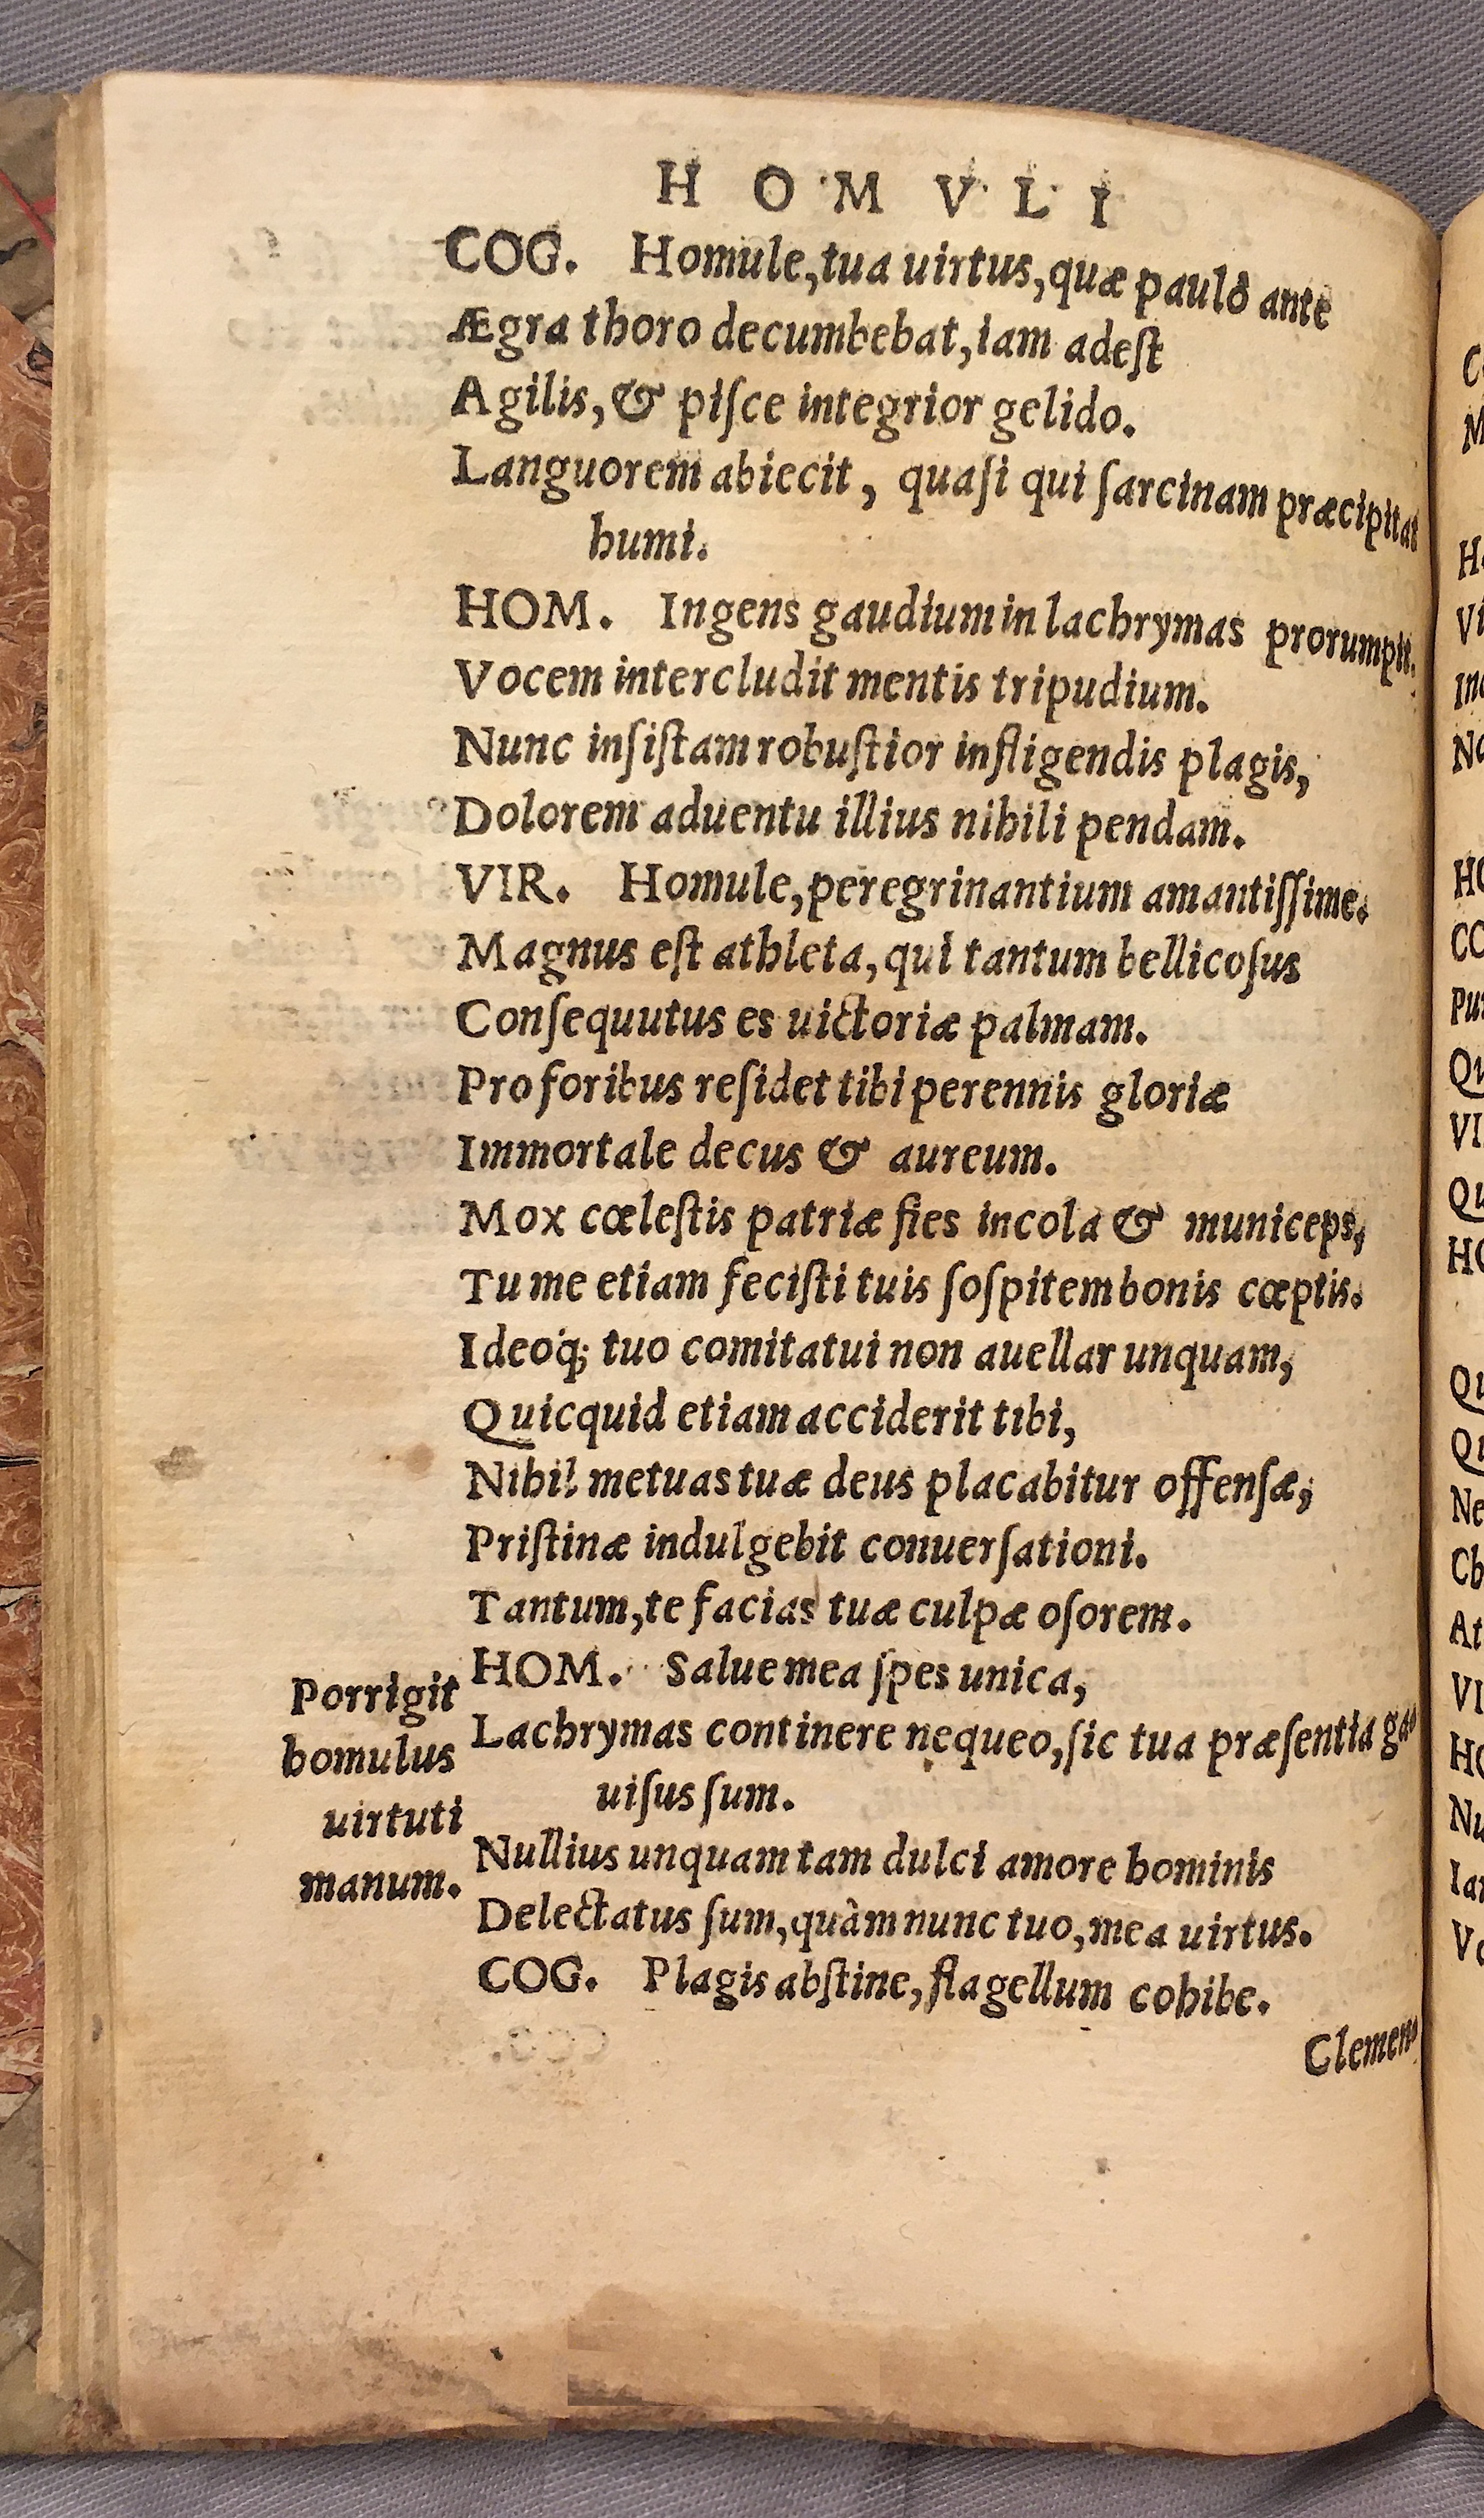 HOMVLI
COG. Homule, tua uirtus, quæ paulò ante
Ægra thoro decumbebat, iam adeſt
Agilis, & piſce integrior gelido.
Languorem abiecit, quaſi qui ſarcinam præcipitat
humi.
HOM. Ingens gaudium in lachrymas prorumpit.
Vocem intercludit mentis tripudium.
Nunc inſiſtam robuſtior infligendis plagis,
Dolorem aduentu illius nihili pendam.
VIR. Homule, peregrinantium amantiſſime.
Magnus eſt athleta, qui tantum bellicoſus
Conſequutus es uictoriæ palmam.
Pro foribus reſidet tibi perennis gloriæ
Immortale decus & aureum.
Mox cœleſtis patriæ fies incola & municeps,
Tu me etiam feciſti tuis ſoſpitem bonis cœptis.
Ideoq́; tuo comitatui non auellar unquam,
Quicquid etiam acciderit tibi,
Nihil metuas tuæ deus placabitur offenſæ,
Priſtinæ indulgebit conuerſationi.
Tantum, te facias tuæ culpæ oſorem.
HOM. Salue mea ſpes unica,
Lachrymas continere nequeo, ſic tua præſentia ga
uiſus ſum.
Nullius unquam tam dulci amore hominis
Delectatus ſum, quàm nunc tuo, mea uirtus.
COG. Plagis abſtine, flagellum cohibe.
Clemens
Porrigit
homulus
uirtuti
manum.